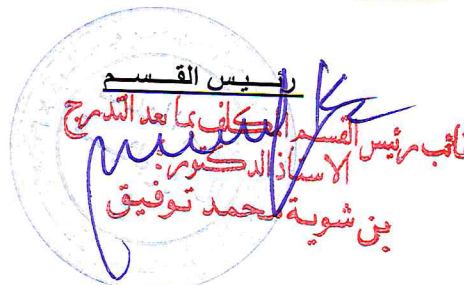 رئيس القسم
نائب رئيس القسم المكلف بما بعد التدرج
الاستاذ الدكتور:
بن شوية محمد توفيق